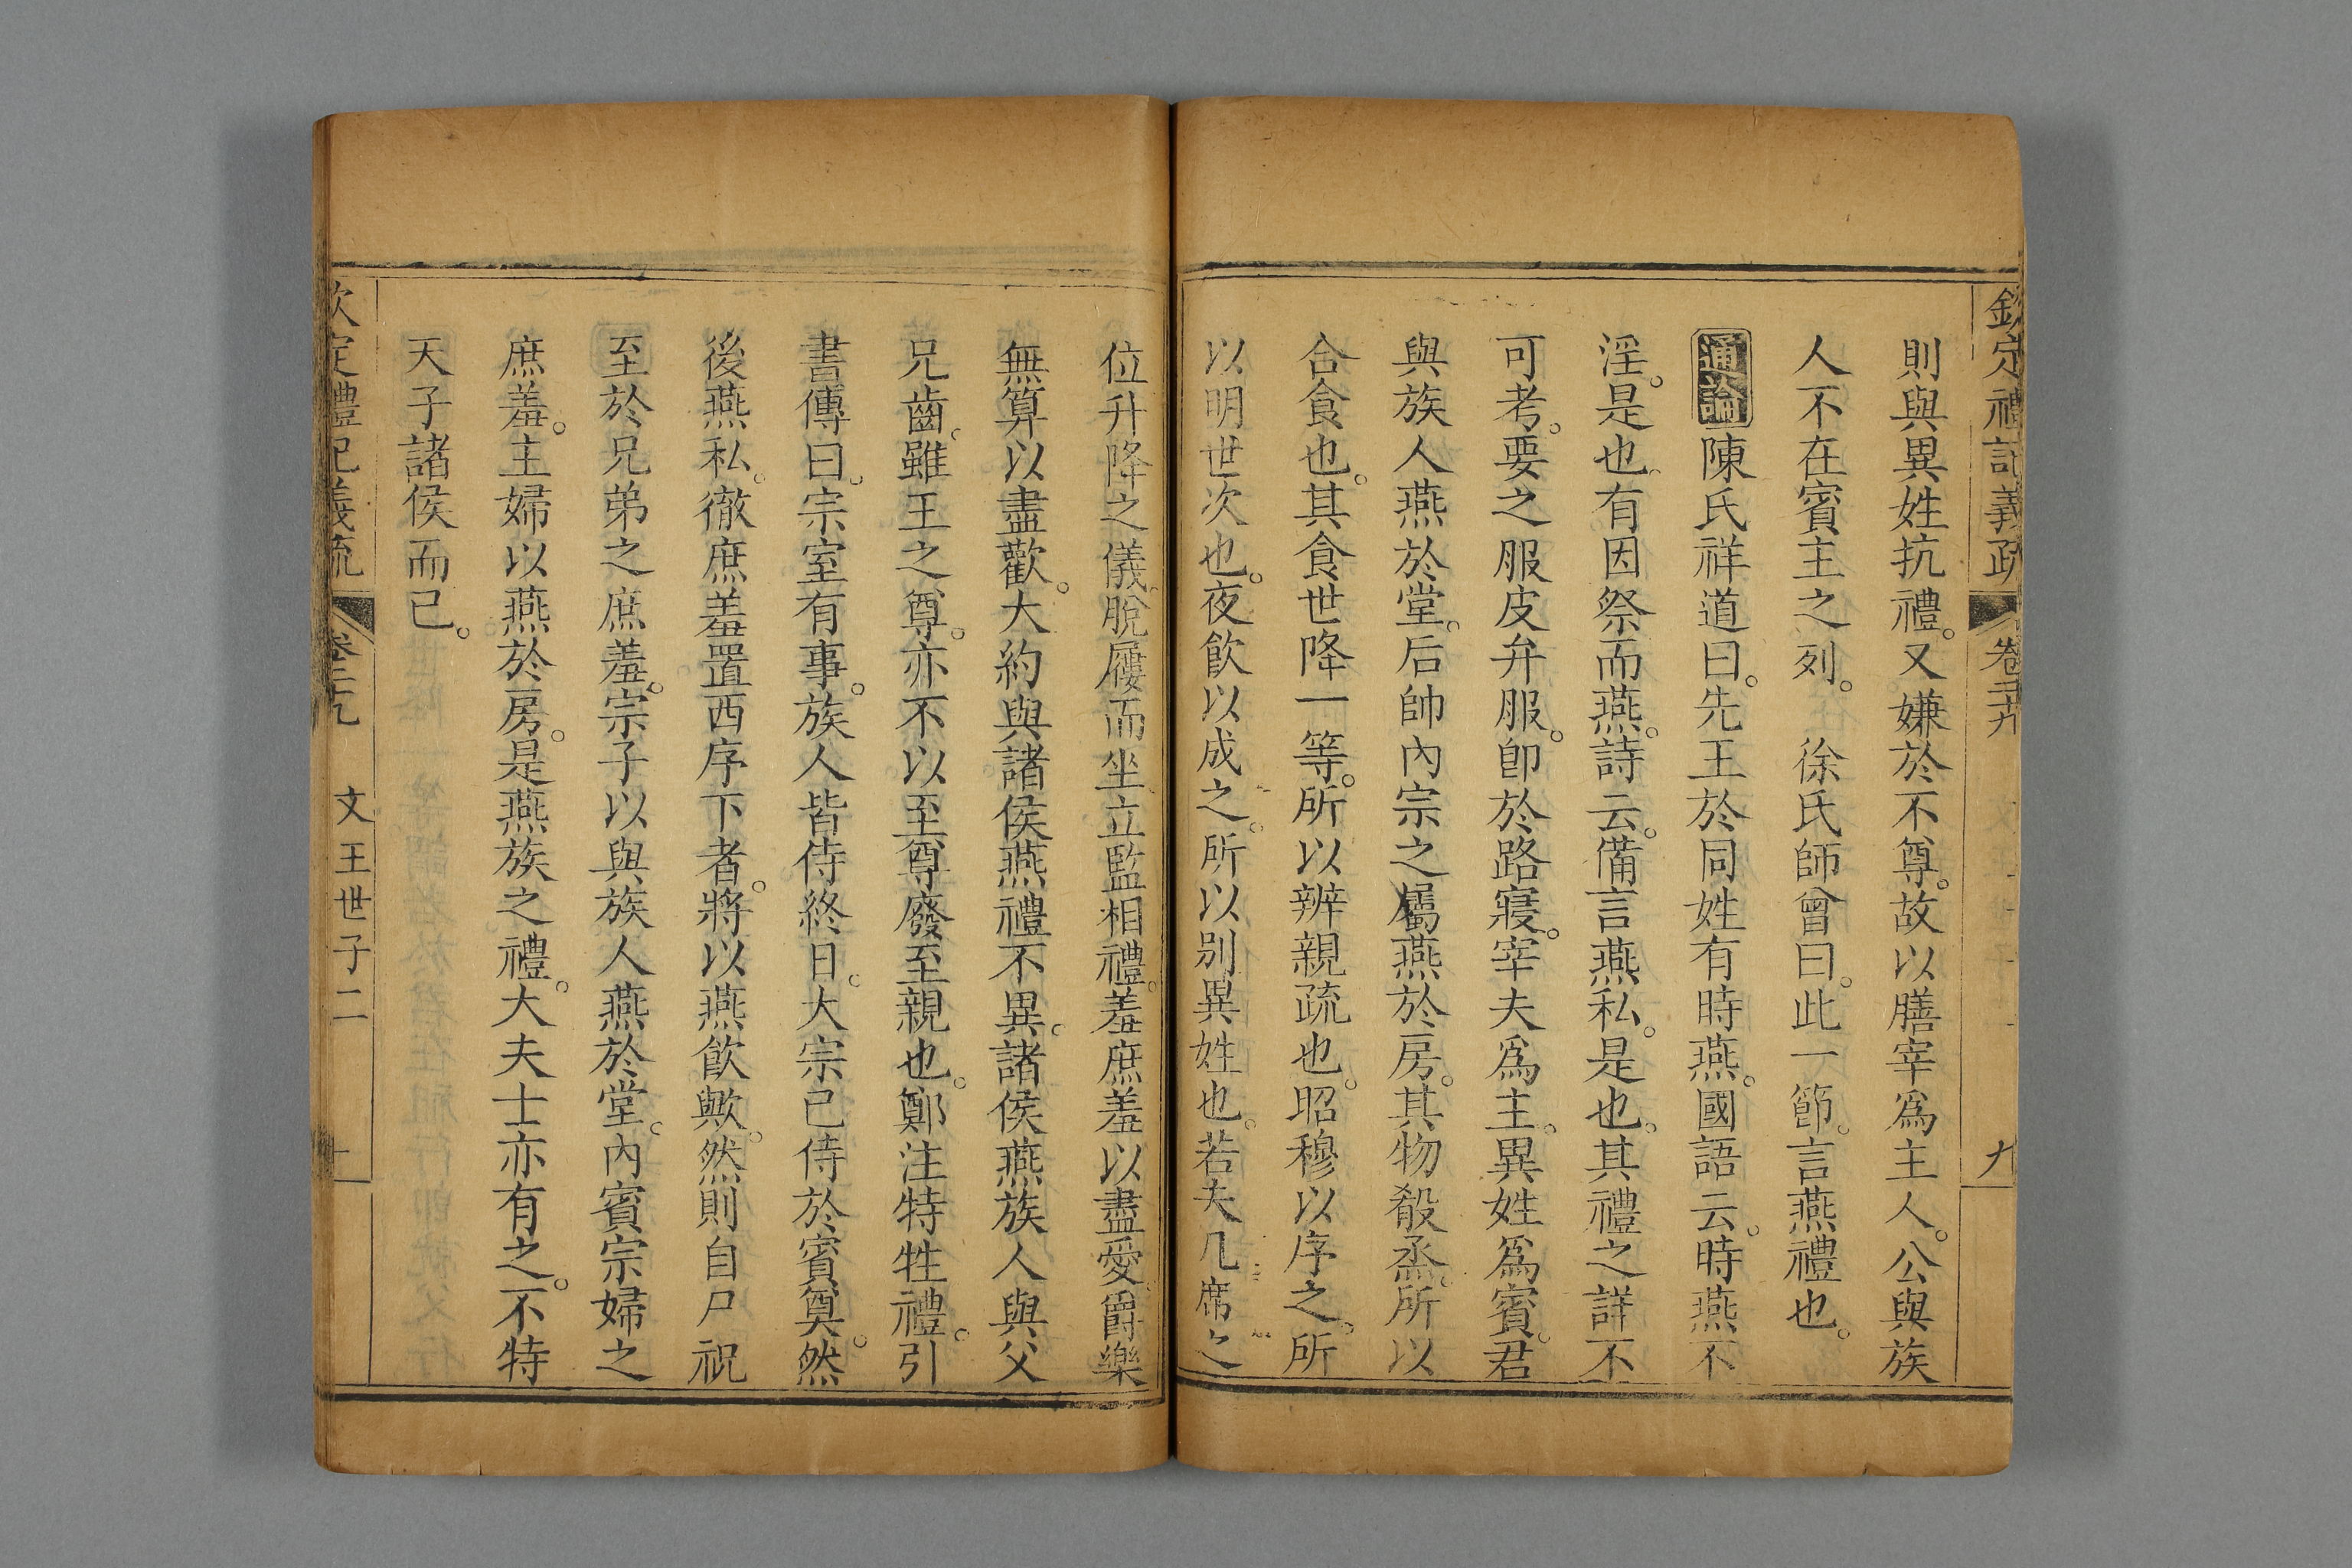 欽定禮記義疏 卷二十九 九
則與異姓抗禮。又嫌於不尊。故以膳宰爲主人。公與族
人不在賓主之列。 徐氏師曾曰。此一節。言燕禮也。
通論 陳氏祥道曰。先王於同姓有時燕。國語云。時燕不
淫。是也。有因祭而燕。詩云。備言燕私。是也。其禮之詳不
可考。要之服皮弁服。卽於路寢。宰夫爲主。異姓爲賓。君
與族人燕於堂。后帥內宗之屬燕於房。其物殽烝。所以
合食也。其食世降一等。所以辨親疏也。昭穆以序之。所
以明世次也。夜飮以成之。所以别異姓也。若夫几席之
位升降之儀。脫屨而坐立監相禮。羞庶羞以盡愛。爵樂
無算以盡歡。大約與諸侯燕禮不異。諸侯燕族人與父
兄齒。雖王之尊。亦不以至尊廢至親也。鄭注特牲禮。引
書傳曰。宗室有事。族人皆侍終日。大宗已侍於賓奠。然
後燕私。徹庶羞置西序下者。將以燕飮歟。然則自尸祝
至於兄弟之庶羞。宗子以與族人燕於堂。內賓宗婦之
庶羞。主婦以燕於房。是燕族之禮。大夫士亦有之。不特
天子諸侯而已。
欽定禮記義疏 卷二十九 文王世子二